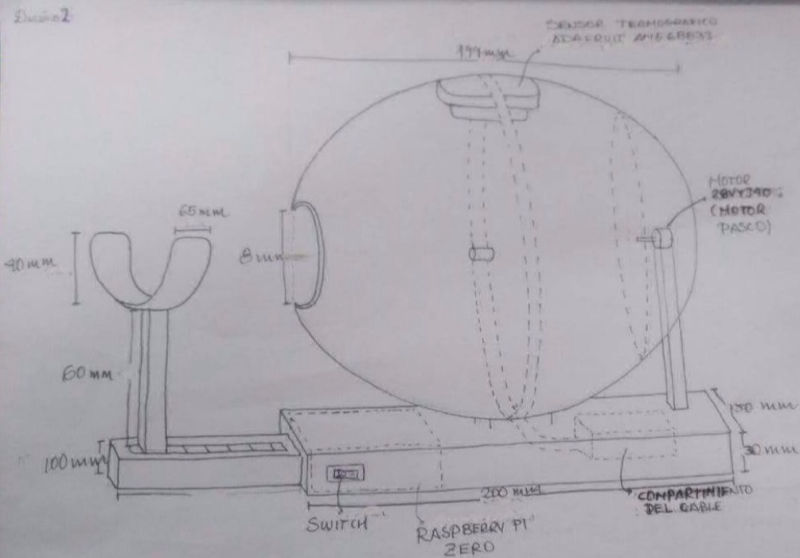 Diseño 2
SENSOR TERMOGRAFICO
ADAFRUIT
199 mm
MOTOR
(MOTOR
PASO)
65 mm
90 mm
8 mm
60 mm
100 mm
30 mm
200 mm
SWITCH
RASPBERRY PI
ZERO
COMPARTIMIENTO
DEL CABLE